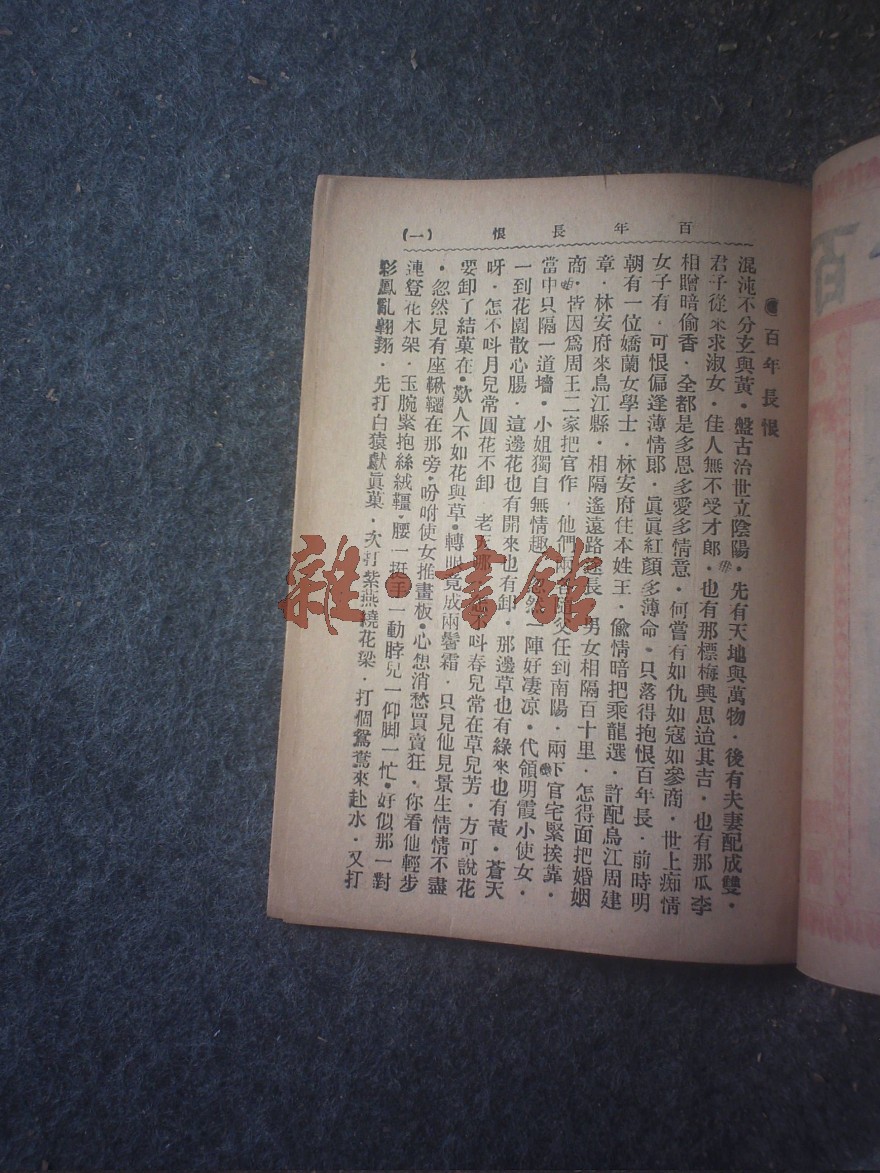 百年長恨 (一)
百年長恨
混沌不分玄與黃．盤古治世立陰陽．先有天地與萬物．後有夫妻配成雙．
君子從來求淑女．佳人無不受才郎．也有那標梅興思迨其吉．也有那瓜李
相贈暗偷香．全都是多恩多愛多情意．何嘗有如仇如寇如參商．世上痴情
女子有．可恨偏逢薄情郎．眞眞紅顏多薄命．只落得抱恨百年長．前時明
朝有一位嬌蘭女學士．林安府住本姓王．偸情暗把乘龍選．許配烏江周建
章．林安府來烏江縣．相隔遙遠路途長．男女相隔百十里．怎得面把婚姻
商．皆因爲周王二家把官作．他們兩父任到南陽．兩下官宅緊挨靠．
當中只隔一道墻．小姐獨自無情趣．忽然一陣好凄凉．代領明霞小使女．
一到花園散心腸．這邊花也有開來也有卸．那邊草也有綠來也有黃．蒼天
呀．怎不呌月兒常圓花不卸．老不呌春兒常在草兒芳．方可說花
要卸了結菓在．歎人不如花與草．轉眼竟成兩鬢霜．只見他見景生情情不盡
．忽然見有座鞦韆在那旁．吩咐使女推畫板．心想消愁買賣狂．你看他輕步
連登花木架．玉腕緊抱絲絨韁．腰一挺手一動脖兒一仰脚一忙．好似那一對
彩鳳亂翱翔．先打白猿獻眞菓．次打紫燕繞花梁．打個鴛鴦來赴水．又打
雜·書館
百